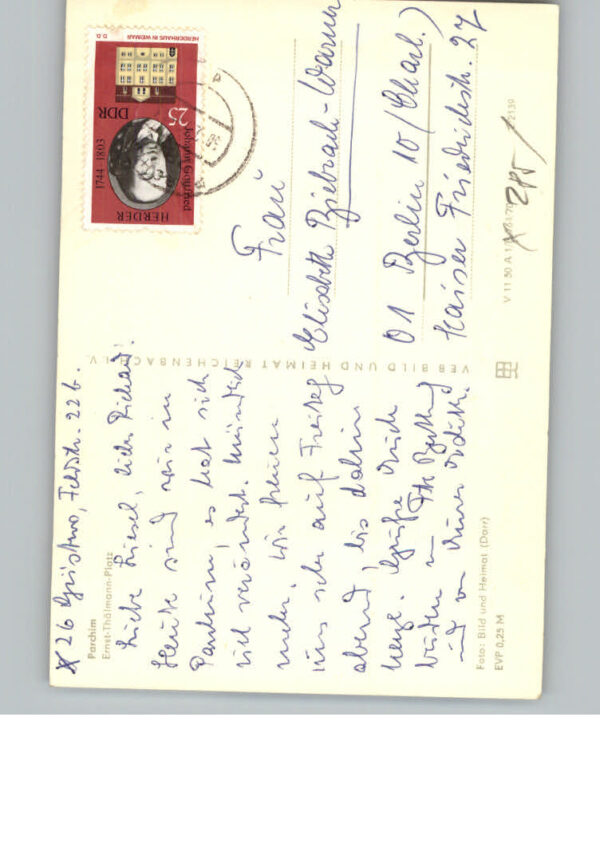 26 Güstrow, Feldstr. 22 b.
Parchim
Ernst-Thälmann-Platz
Liebe Liesel, lieber Richard!
Heute sind wir in
Parchim, es hat sich
viel verändert. Mündlich
mehr. Wir freuen
uns sehr auf Freitag
abend! bis dahin
herzl. Grüße Euch
beiden
und von Eurer Edith.
Foto: Bild und Heimat (Darr)
EVP 0,25 M
VEB BILD UND HEIMAT REICHENBACH I. V.
HERDERHAUS IN WEIMAR
DDR 25
Johann Gottfried
HERDER
1744 - 1803
Frau
Elisabeth
01 Berlin 10 (Charl.)
Kaiser Friedrichstr. 27
V 11 50 A 1
2139